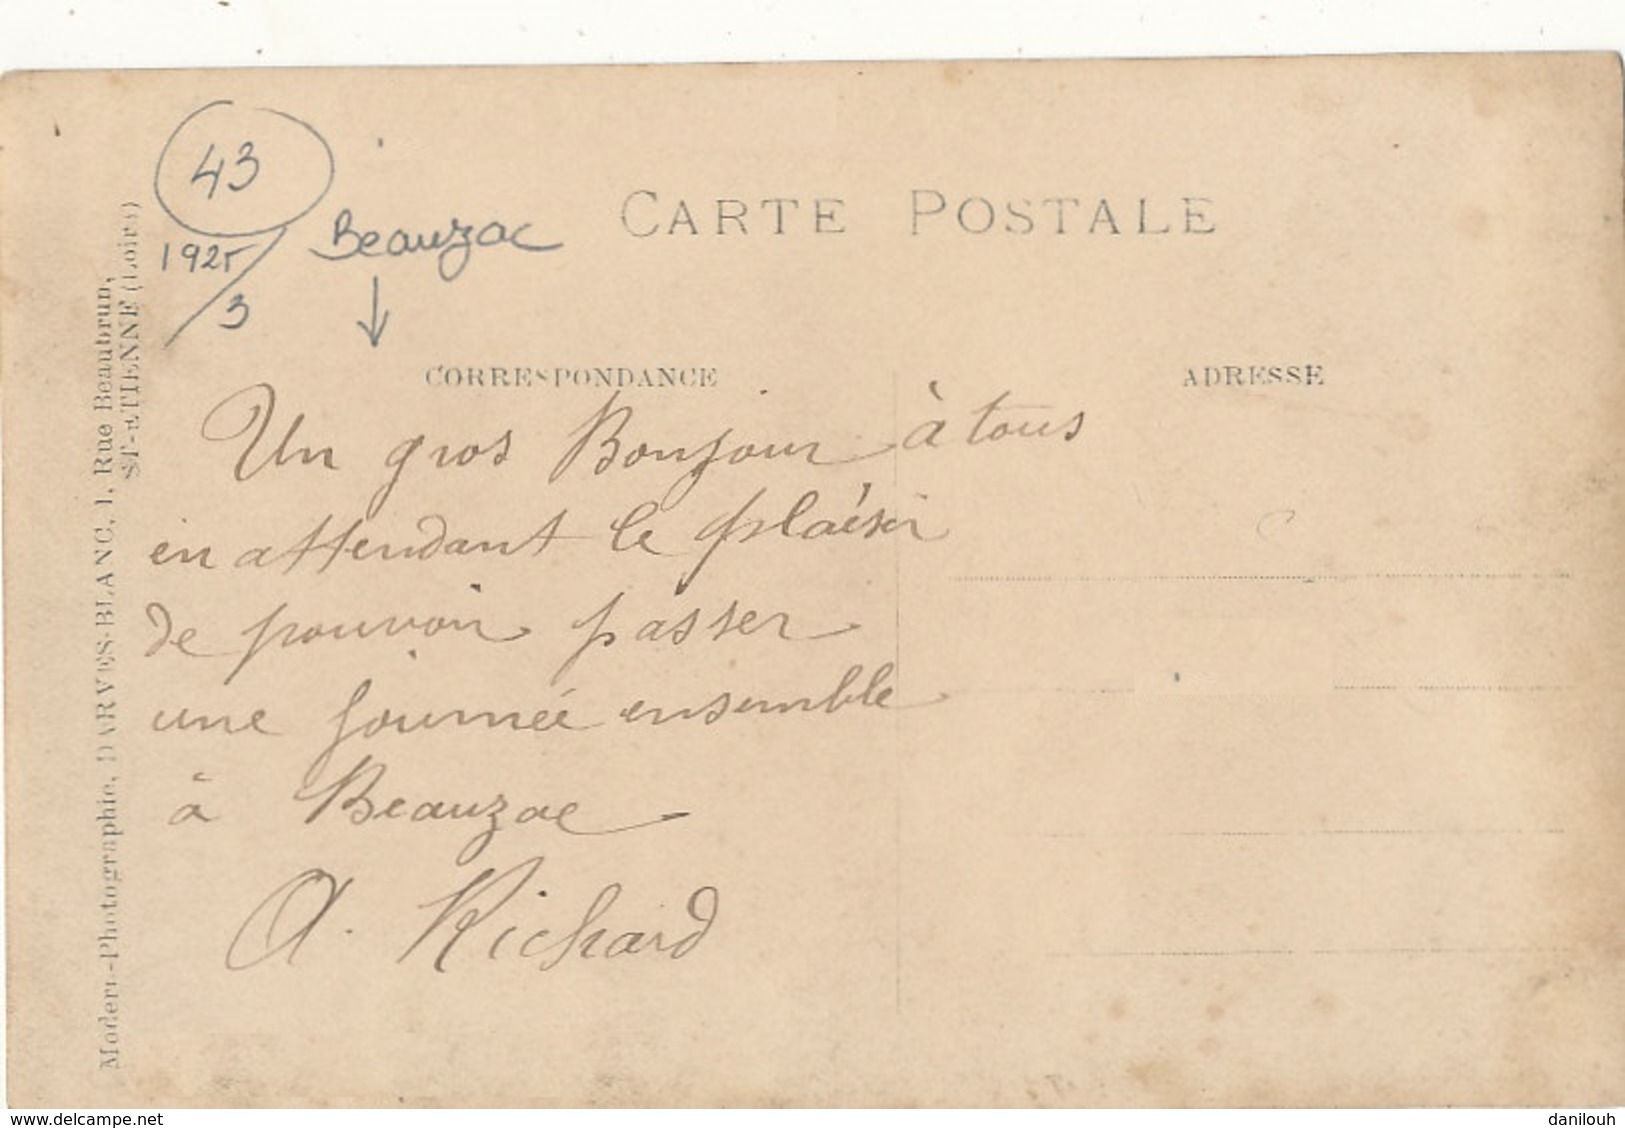 43
1925/3
Beauzac
CARTE POSTALE
CORRESPONDANCE
ADRESSE
Un gros Bonjour à tous
en attendant le plaisir
de pouvoir passer
une journée ensemble
à Beauzac
A. Richard
Modern-Photographie, DARVES-BLANC, 1, Rue Beaubrun,
ST-ETIENNE (Loire)
www.delcampe.net
danilouh